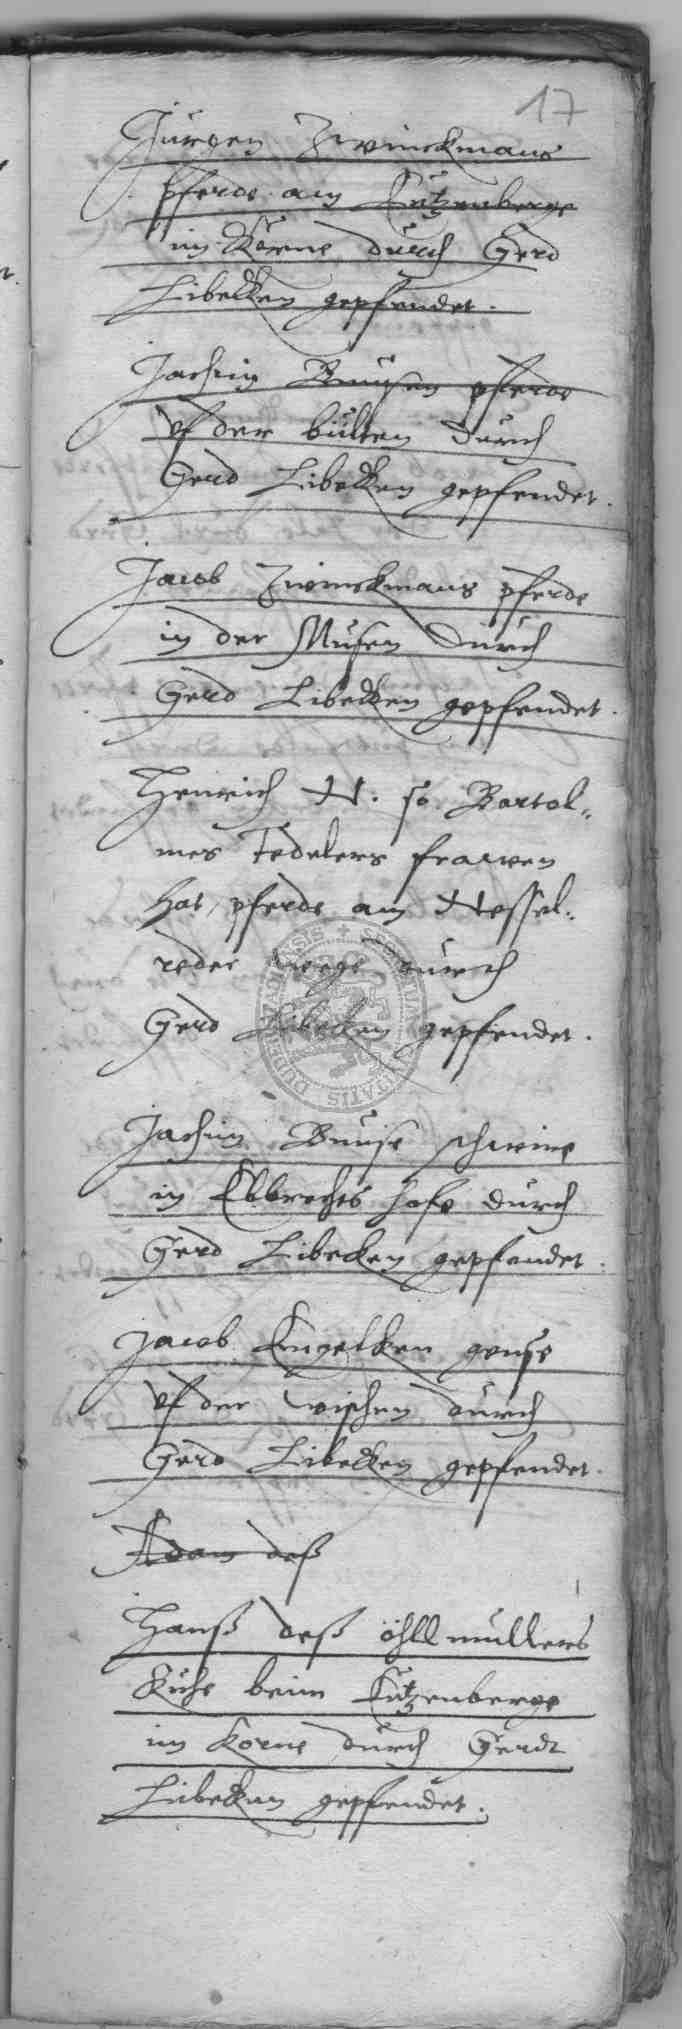 17
Jurgen Zwinckmans
pferde am Kutzenberge
im Korne durch Gerd
Libecken gepfendet.
Jochim Bunsen pferde
vf der bulten durch
Gerd Libecken gepfendet.
Jacob Zwinckmans pferde
in der Musen durch
Gerd Libecken gepfendet.
Henrich N. so Bartol„
mes Tedelers frawen
hat, pferde am Nessel„
roder wege durch
Gerd Libecken gepfendet.
Jochim Bunse schweine
in Ebbrechts hofe durch
Gerd Libecken gepfendet.
Jacob Engelken gense
vf der wischen durch
Gerd Libecken gepfendet.
Adam deß
Hanß deß öhllmullers
Kuhe beim Kutzenberge
im Korne durch Gerdt
Libecken gepfendet.